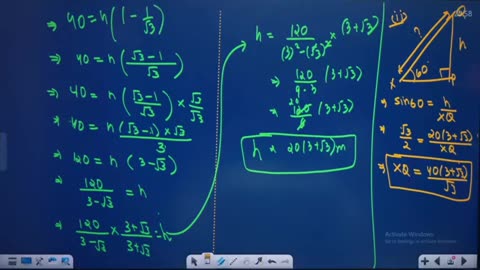 ⇒ 40 = h(1 - 1/√3)
⇒ 40 = h((√3-1)/√3)
⇒ 40 = h((√3-1)/√3) × √3/√3
⇒ 40 = h((√3-1)×√3)/3
⇒ 120 = h (3-√3)
⇒ 120/(3-√3) = h
⇒ 120/(3-√3) × (3+√3)/(3+√3) = h
h = 120/((3)²-(√3)²) × (3+√3)
⇒ 120/(9-3) (3+√3)
⇒ 20 120/6 (3+√3)
h = 20(3+√3)m
(ii)
Q
h
60°
X
P
⇒ sin60 = h/XQ
⇒ √3/2 = 20(3+√3)/XQ
⇒ XQ = 40(3+√3)/√3
Activate Windows
Go to Settings to activate Windows.